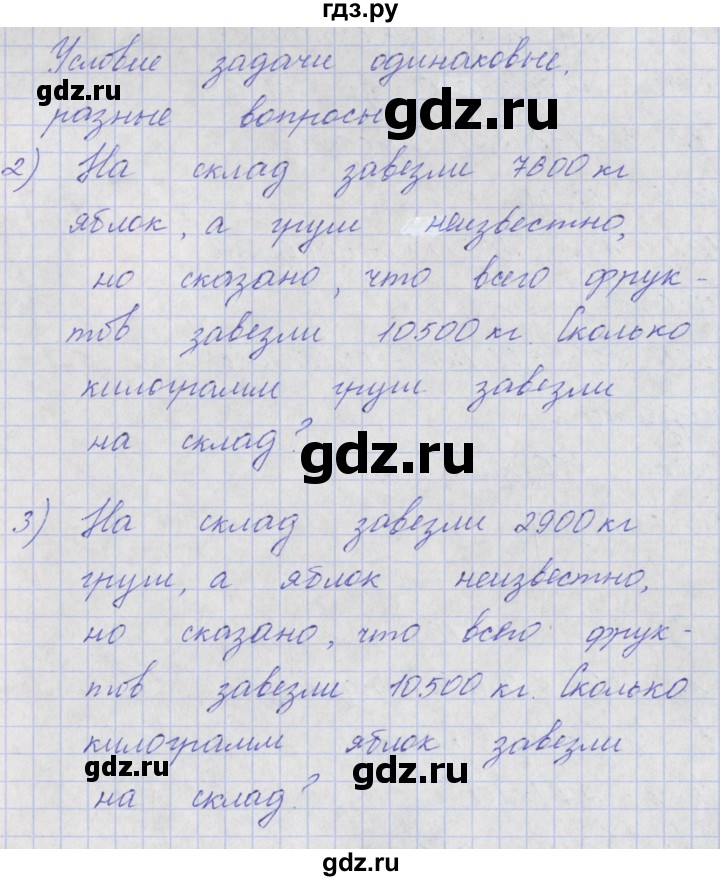 гдз.ру
Условие задачи одинаковые,
разные вопросы
gdz.ru
gdz.ru
2) На склад завезли 7600 кг
яблок, а груш неизвестно,
но сказано, что всего фрук-
тов завезли 10500 кг. Сколько
килограмм груш завезли
на склад?
gdz.ru
3) На склад завезли 2900 кг
груш, а яблок неизвестно,
но сказано, что всего фрук-
тов завезли 10500 кг. Сколько
килограмм яблок завезли
gdz.ru
gdz.ru
на склад?
gdz.ru